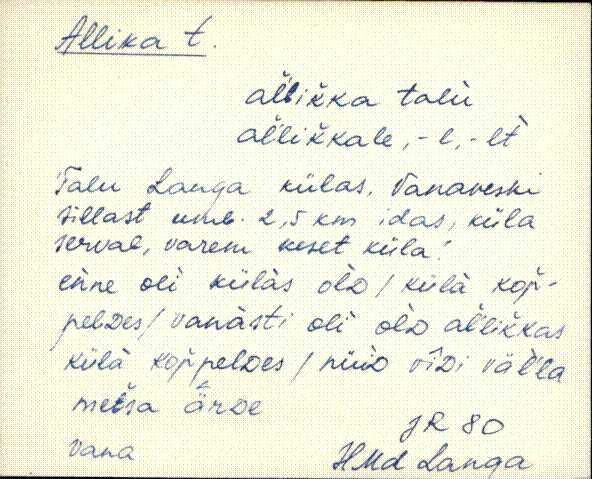 Allika t.
äĺlik̆ka talù
äĺlik̆kale, -l, -lt̀
Talu Langa külas, Vanaveski
sillast umb. 2,5 km idas, küla
serval, varem keset küla:
enne oli küläs olD / külä kop̆-
pelDes / vanàsti oli olD äĺlik̆kas
külä kop̆pelDes / nüiD vîDi väĺla
metsa ärDe
vana
JR 80
HMd Langa